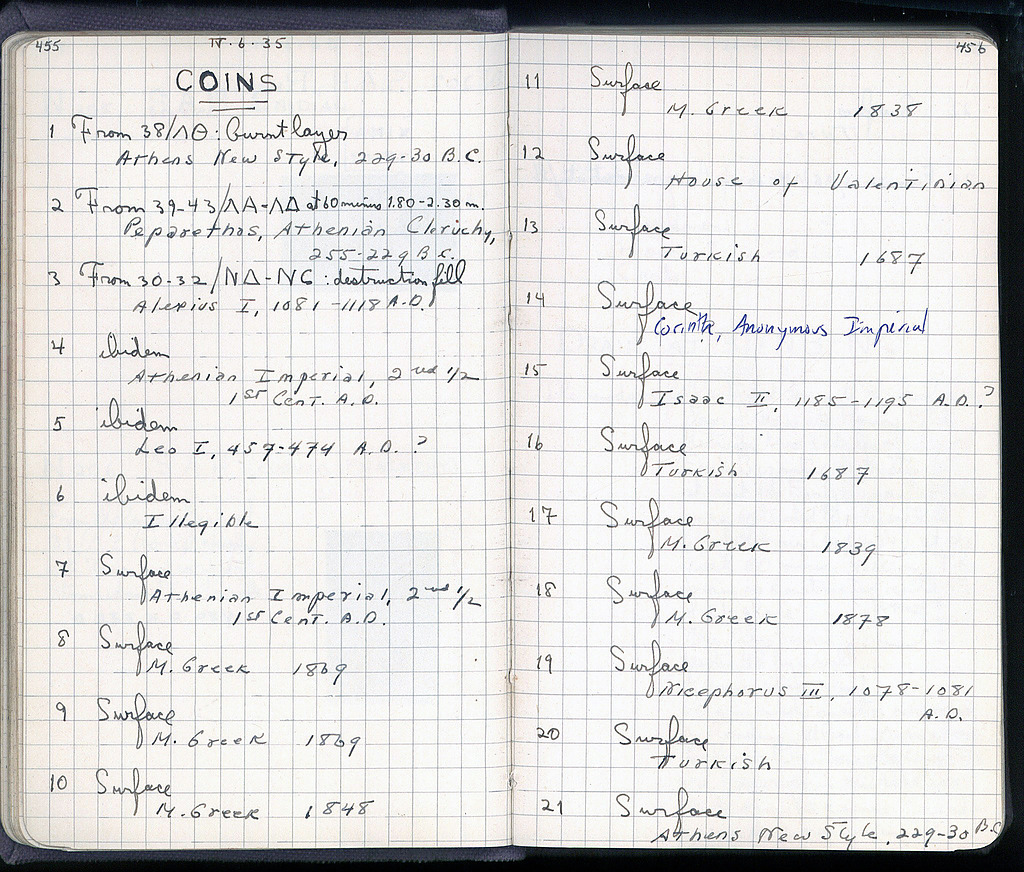 455
IV · 6 · 35
COINS
1 From 38/ΛΘ : burnt layer
Athens New Style, 229-30 B.C.
2 From 39-43/ΛΑ-ΛΔ at 60 minus 1.80-2.30 m.
Peparethos, Athenian Cleruchy,
255-229 B.C.
3 From 30-32/ΝΔ-ΝϚ : destruction fill
Alexius I, 1081-1118 A.D.
4 ibidem
Athenian Imperial, 2nd 1/2
1st Cent. A.D.
5 ibidem
Leo I, 457-474 A.D. ?
6 ibidem
Illegible
7 Surface
Athenian Imperial, 2nd 1/2
1st Cent. A.D.
8 Surface
M. Greek 1869
9 Surface
M. Greek 1869
10 Surface
M. Greek 1848
456
11 Surface
M. Greek 1838
12 Surface
House of Valentinian
13 Surface
Turkish 1687
14 Surface
Corinth, Anonymous Imperial
15 Surface
Isaac II, 1185-1195 A.D. ?
16 Surface
Turkish 1687
17 Surface
M. Greek 1839
18 Surface
M. Greek 1878
19 Surface
Nicephorus III, 1078-1081
A.D.
20 Surface
Turkish
21 Surface
Athens New Style, 229-30 B.C.